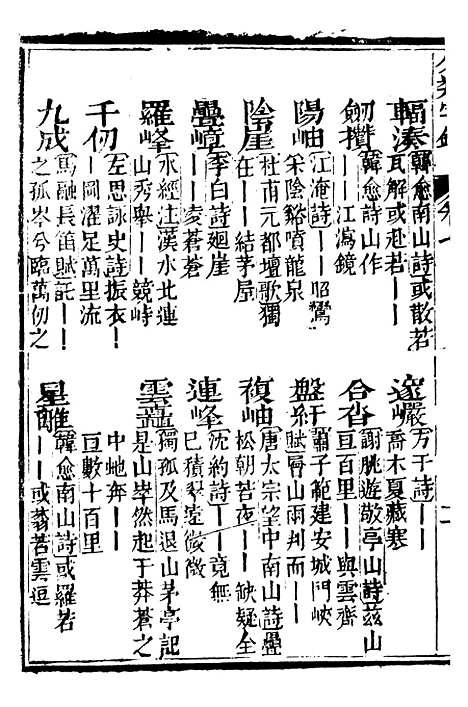 輻湊 韓愈南山詩或散若
瓦解或赴若——
劒攢 韓愈詩山作
——江瀉鏡
陽岫 江淹詩——照鸞
采陰谿噴龍泉
陰崖 杜甫元都壇歌獨
在——結茅屋
疊嶂 李白詩廻崖
——凌蒼蒼
羅峰 水經注漢水北連
山秀舉——競峙
千仞 左思詠史詩振衣—
—岡濯足萬里流
九成 馬融長笛賦託——
之孤岑兮臨萬仞之
邃巘 方干詩——
喬木夏藏寒
合沓 謝朓遊敬亭山詩茲山
亘百里——與雲齊
盤紆 蕭子範建安城門峽
賦層山雨判而——
複岫 唐太宗望中南山詩疊
松朝若夜——缺疑全
連峰 沈約詩——竟無
已積翠遠微微
雲矗 獨孤及馬退山茅亭記
是山崒然起于莽蒼之
中馳奔——
亘數十百里
星離 韓愈南山詩或羅若
——或蓊若雲逗